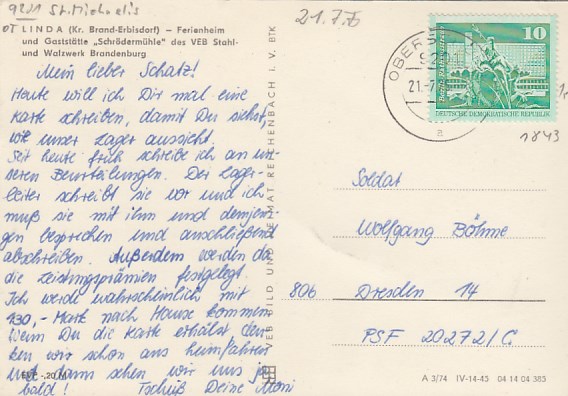 9201 St. Michaelis
21.7.76
OT LINDA (Kr. Brand-Erbisdorf) – Ferienheim
und Gaststätte „Schrödermühle" des VEB Stahl-
und Walzwerk Brandenburg
Mein lieber Schatz!
Heute will ich Dir mal eine
Karte schreiben, damit Du siehst,
wie unser Lager aussieht.
Seit heute früh schreibe ich an un-
seren Beurteilungen. Der Lager-
leiter schreibt sie vor und ich
muß sie mit ihm und demjeni-
gen besprechen und anschließend
abschreiben. Außerdem werden da
die Leistungsprämien festgelegt.
Ich werde wahrscheinlich mit
130,- Mark nach Hause kommen.
Wenn Du die Karte erhälst den-
ken wir schon ans heimfahren
und dann sehen wir uns ja
bald! Tschüß Deine Moni
EVP -,20 M
VEB BILD UND HEIMAT REICHENBACH I. V. BTK
OBER
21.-7
a
10
Berlin, Rathausstraße
DEUTSCHE DEMOKRATISCHE REPUBLIK
1843
Soldat
Wolfgang Böhme
806 Dresden 14
PSF 20272/C
A 3/74 IV-14-45 04 14 04 385